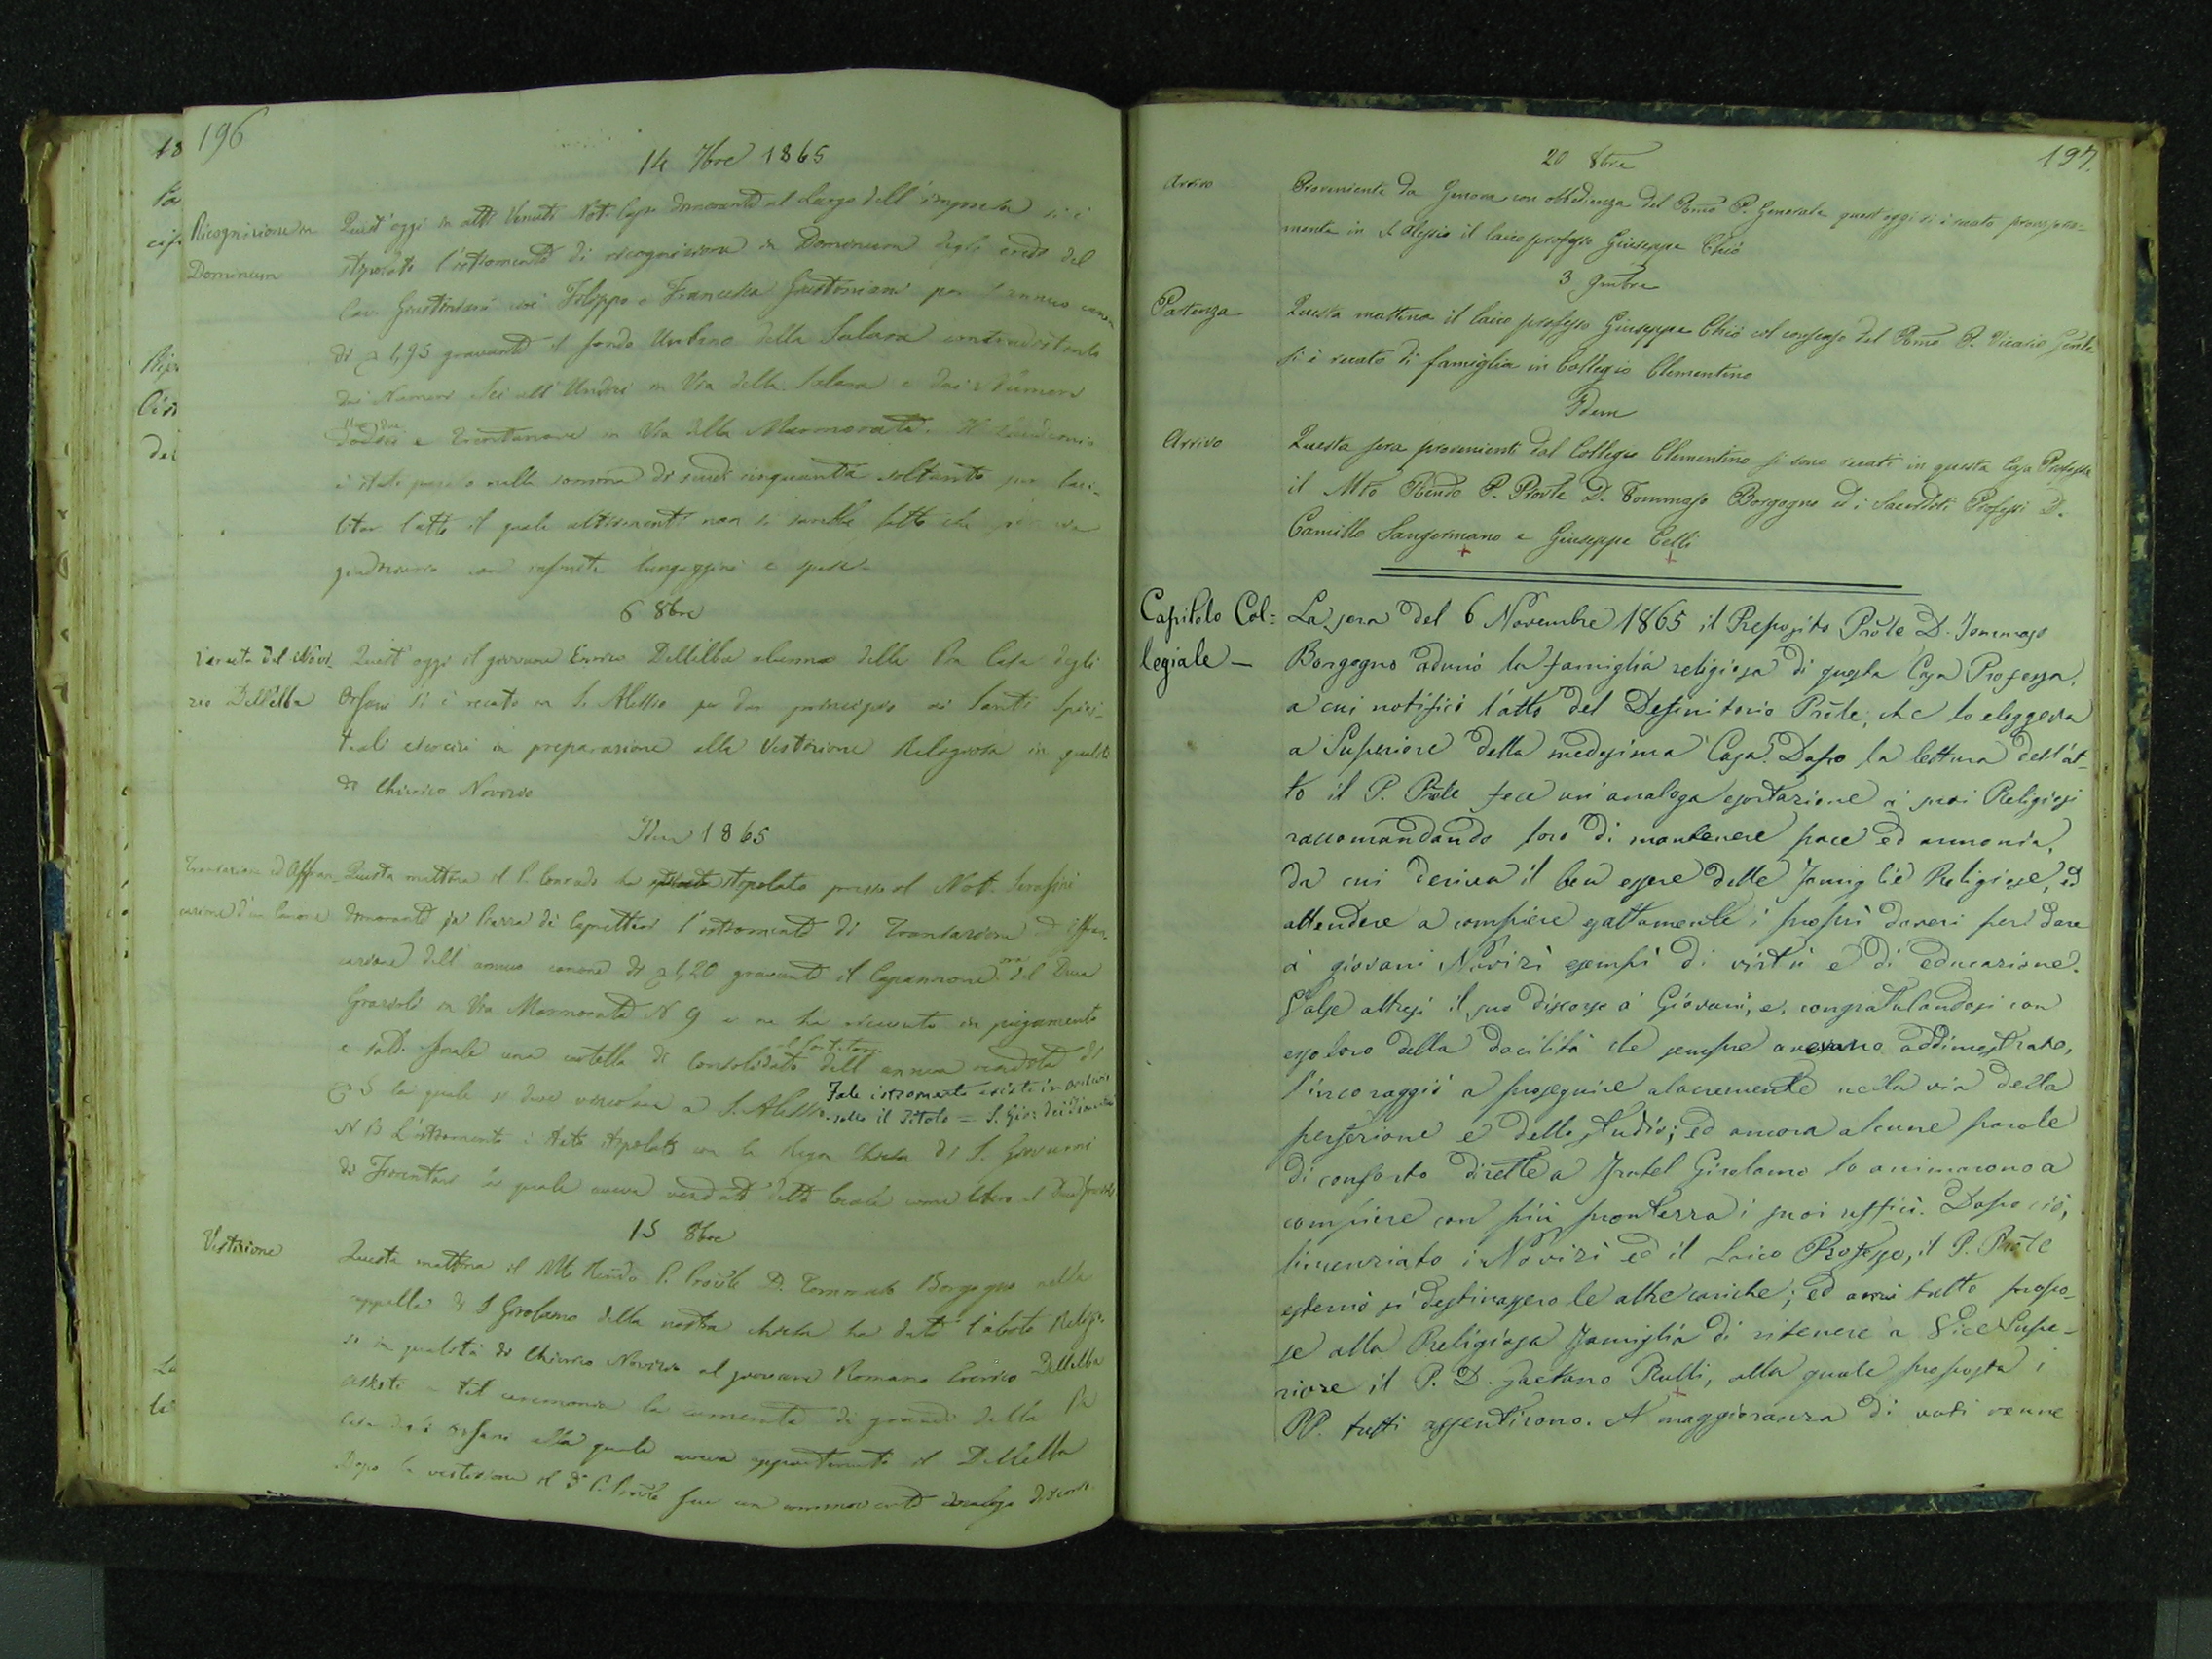 196
14 7bre 1865
Ricognizione in
Dominum
Quest'oggi in atti Venuti Not. Cap. dimorante al Largo dell'impresa si è
stipolato l'istromento di ricognizione in Dominum degli eredi del
Cav. Giustiniani cioè Filippo e Francesca Giustiniani per l'annuo canone
di 1,95 gravante il fondo Urbano della Salara contradistinto
dai Numeri Sei all'Undici in Via della Salara e dai Numeri
e Trentanove in Via della Marmorata. Il Laudemio
è stato nella somma di scudi cinquanta soltanto per faci-
litar l'atto il quale altrimenti non si sarebbe fatto che per via
giudiziaria con infinite lungaggini e spese.
6 8bre
Venuta del Novi-
zio Dellelba
Quest'oggi il giovane Enrico Dellelba alunno della Pia Casa degli
Orfani si è recato in S. Alessio per dar principio ai Santi Spiri-
tuali esercizi in preparazione alla Vestizione Religiosa in qualità
di Chierico Novizio
Idem 1865
Transazione ed Affran-
cazione d'un Canone
Questa mattina il P. Conrado ha stipolato presso il Not. Serafini
dimorante in Piazza di Caprettari l'istromento di Transazione ed Affran-
cazione dell'annuo canone di 1,20 gravante il Capannone ora del Duca
Grazioli in Via Marmorata N 9 e ne ha ricevuto in pagamento
e saldo finale una cartella di Consolidato dell'annua rendita di
5 la quale si deve vincolare a S. Alessio. Tale istromento esiste in archivio
sotto il Titolo = S. Gio: dei Fiorentini
NB L'istromento è stato stipolato con la Regia Chiesa di S. Giovanni
de Fiorentini la quale aveva venduto detto locale come libero al Duca Grazioli
15 8bre
Vestizione
Questa mattina il Mto Rendo P. Provle D. Tommaso Borgogno nella
cappella di S Girolamo della nostra chiesa ha dato l'abito Religio-
so in qualità di Chierico Novizio al giovane Romano Enrico Dellelba
Assistè a tal ceremonia la camerata di grandi della Pia
Casa degli Orfani alla quale aveva appartenuto il Dellelba
Dopo la vestizione il do P. Provle fece un commovente analogo discorso.
197.
20 8bre
Arrivo
Proveniente da Genova con obbedienza del Rmo P. Generale quest'oggi si è recato provvisoria-
mente in S. Alessio il laico professo Giuseppe Chiò
3 9mbre
Partenza
Questa mattina il laico professo Giuseppe Chiò col consenso del Rmo P. Vicario Genle
si è recato di famiglia in Collegio Clementino
Idem
Arrivo
Questa sera provenienti dal Collegio Clementino si sono recati in questa Casa Professa
il Mto Rendo P. Provle D. Tommaso Borgogno ed i Sacerdoti Professi D.
Camillo Sangermano e Giuseppe Celli
Capitolo Col=
legiale —
La sera del 6 Novembre 1865 il Preposito Prõle D. Tommaso
Borgogno adunò la famiglia religiosa di questa Casa Professa,
a cui notificò l'atto del Definitorio Prõle, che lo eleggeva
a Superiore della medesima Casa. Dopo la lettura dell'at-
to il P. Prõle fece un'analoga esortazione a' suoi Religiosi
raccomandando loro di mantenere pace ed armonia,
da cui deriva il ben essere delle Famiglie Religiose, ed
attendere a compiere esattamente i propri doveri per dare
a' giovani Novizi esempi di virtù e di educazione.
Volse altresì il suo discorso a' Giovani, e, congratulandosi con
essoloro della docilità che sempre avevano addimostrato,
l'incoraggiò a proseguire alacremente nella via della
perfezione e dello studio; ed ancora alcune parole
di conforto dirette a Fratel Girolamo lo animarono a
compiere con più prontezza i suoi uffici. Dopo ciò,
licenziato i Novizi ed il Laico Professo, il P. Prõle
esternò si destinassero le altre cariche; ed anzi tutto propo-
se alla Religiosa Famiglia di ritenere a Vice Supe-
riore il P. D. Gaetano Rulli, alla quale proposta i
PP. tutti assentirono. A maggioranza di voti venne